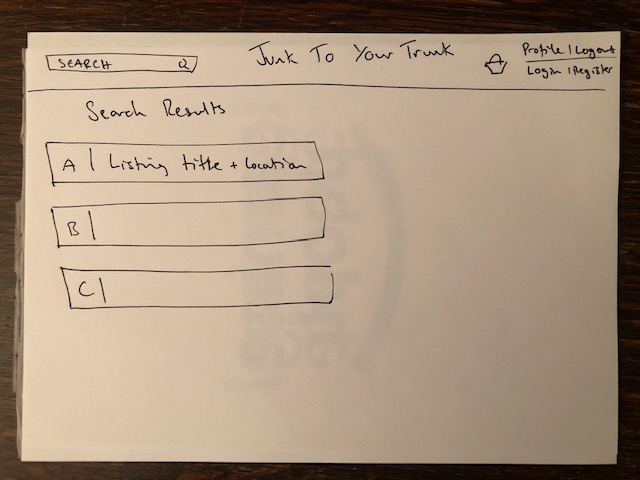 SEARCH
Junk To Your Trunk
Profile | Logout
Login | Register
Search Results
A | Listing title + Location
B |
C |